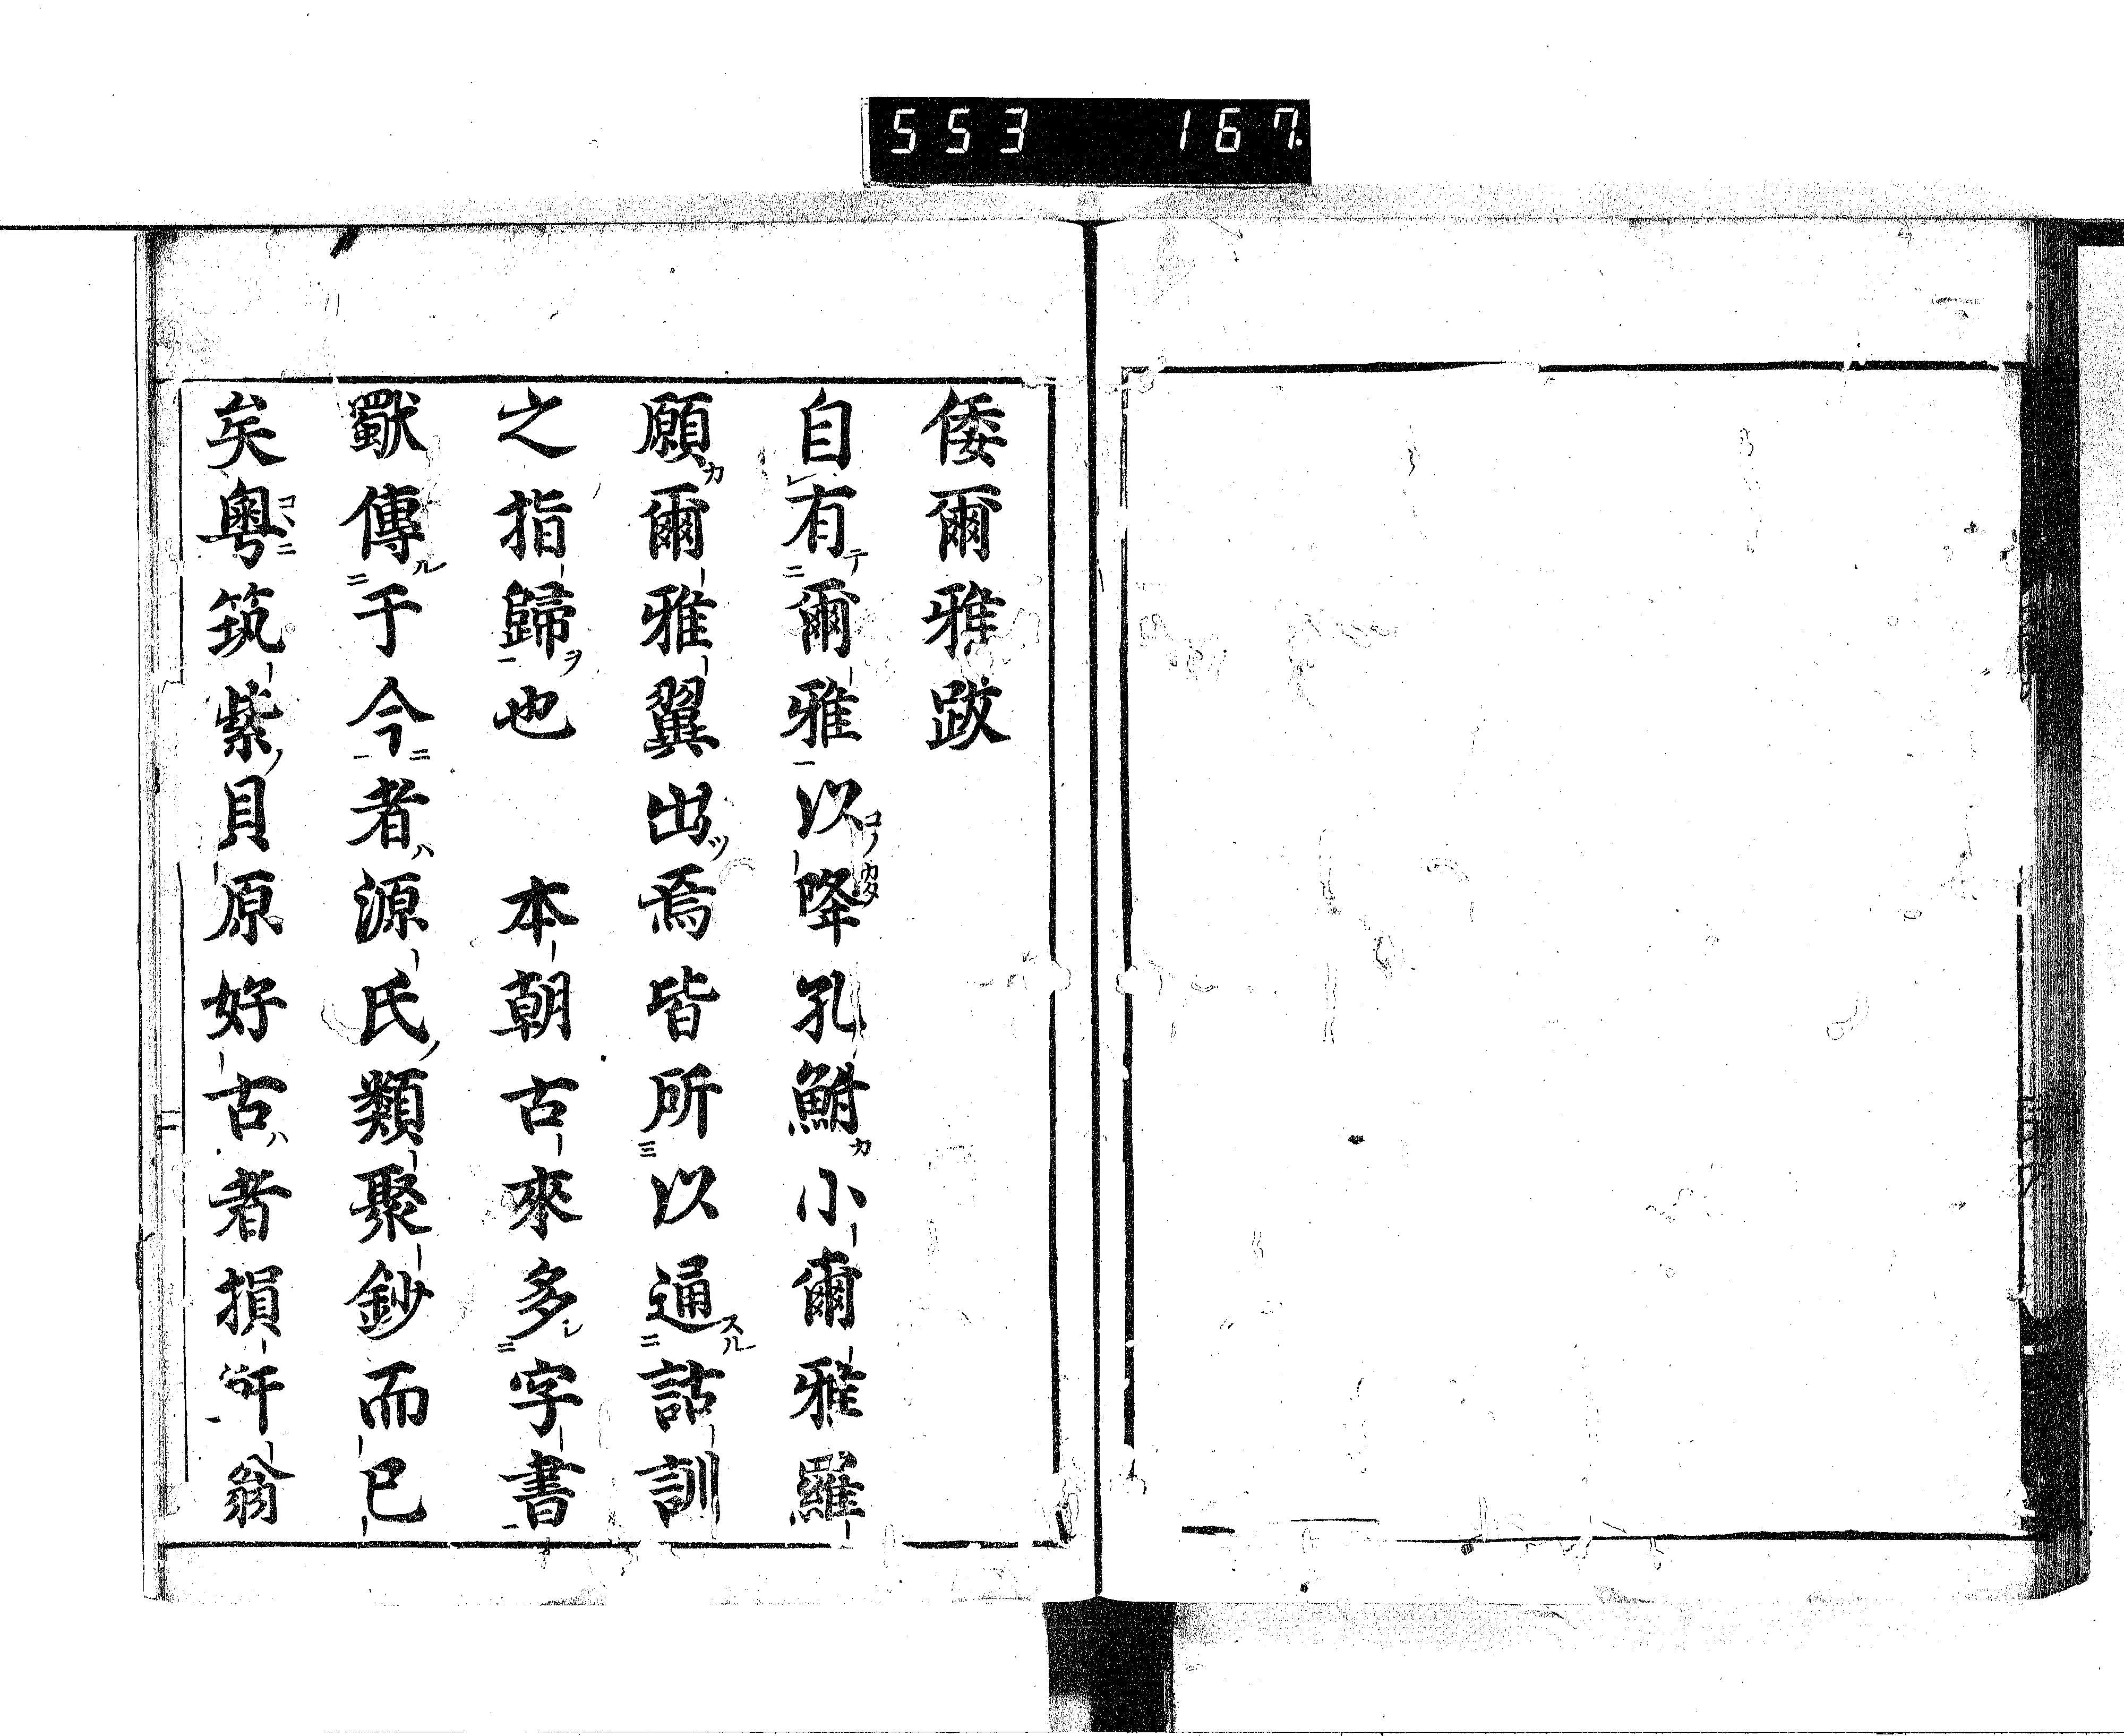 553 167
倭爾雅跋
自有爾雅以降孔鮒小爾雅羅
願爾雅翼出焉皆所以通詁訓
之指歸也 本朝古來多字書
獸傳于今者源氏類聚鈔而已
矣粤筑紫貝原好古者損軒翁